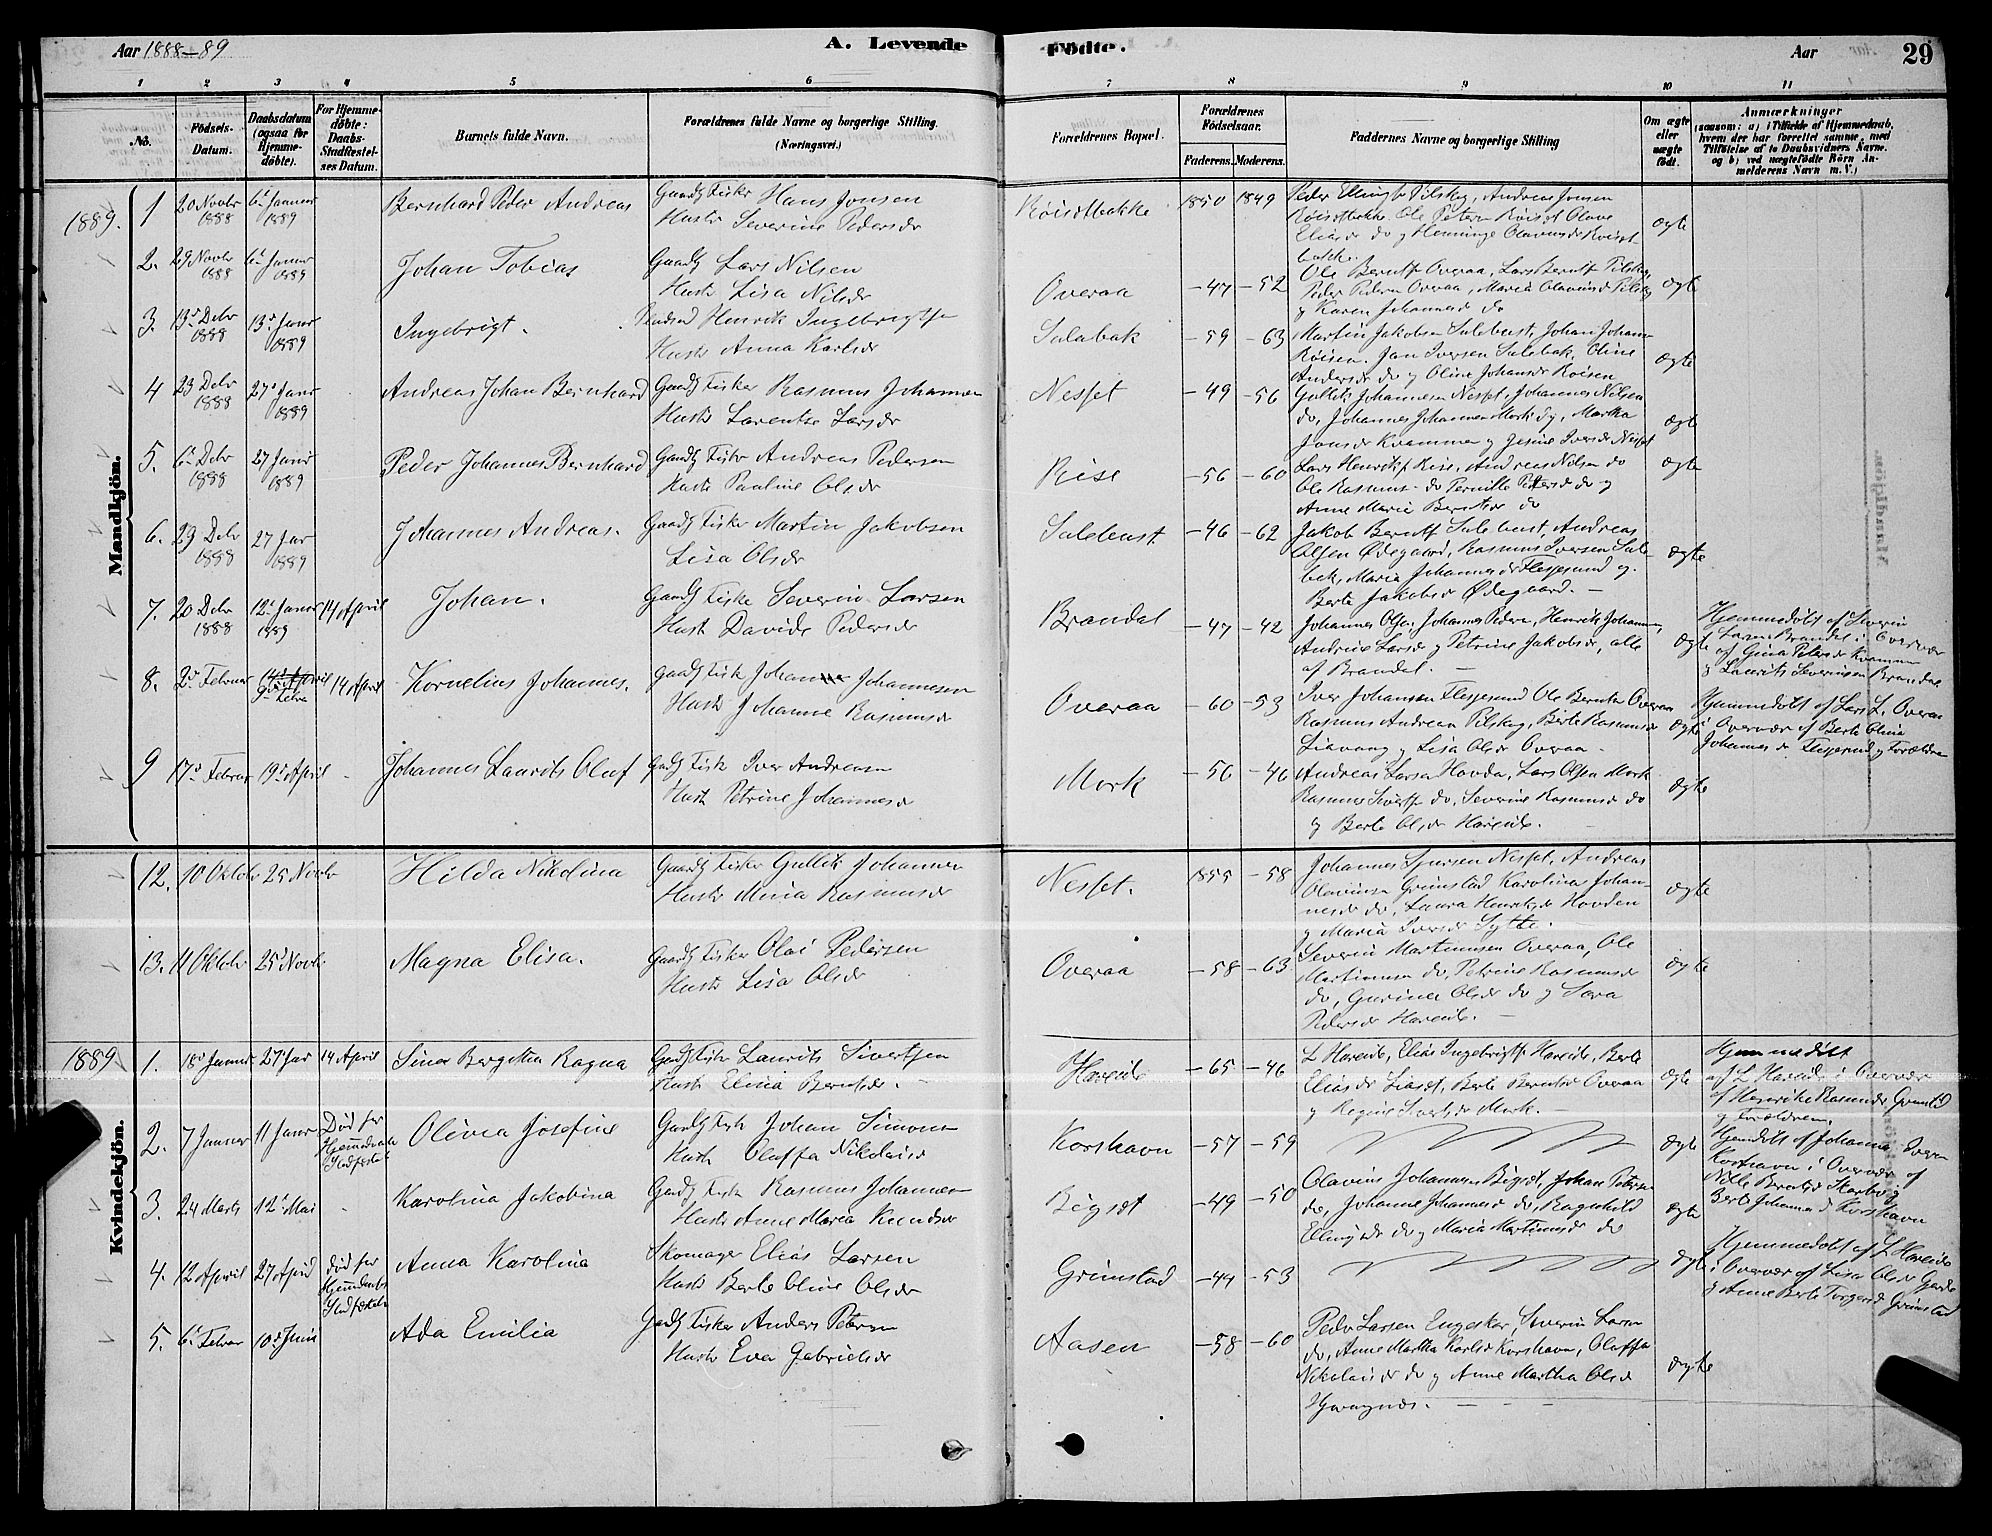 Aar 1888-89
A. Levende Fødte.
Aar
29
1 2 3 4 5 6 7 8 9 10 11
No.
Fødsels-Datum.
Daabsdatum (ogsaa for Hjemmedøbte).
For Hjemmedøbte: Daabs-Stadfæstelses Datum.
Barnets fulde Navn.
Forældrenes fulde Navne og borgerlige Stilling (Næringsvei.)
Forældrenes Bopæl.
Forældrenes Fødselsaar.
Faderens. Moderens.
Faddernes Navne og borgerlige Stilling
Om ægte eller uægte født.
Anmærkninger
(saasom: a) i Tilfælde af Hjemmedaab, hvem der har forrettet samme, med Tilføielse af to Daabsvidners Navne. og b) ved uægtefødte Börn Anmelderens Navn m. V.)
Mandkjön.
1889. 1 20 Novbr 1888 6te Januar 1889 Bernhard Peder Andreas Gaardb Fisker Hans Jonsen
Hustr Severine Pedersdr
Röisetbakke 1850 1849 Peder Ellingsb Pilskog, Andreas Jonsen
Röisetbakke Ole Petersen Röiset Olave
Eliasdr do og Henninge Olavusdr Roiset
bakke. ægte
2. 29 Novbr 1888 6te Januar 1889 Johan Tobias Gaardb Lars Nilsen
Hustr Lisa Nilsdr
Overaa -47 -52 Ole Berntsf Overaa, Lars Berntsf Pilskog,
Peder Pedersen Overaa, Maria Olavusdr Pilskog
og Karen Johannesdr do ægte
3. 13de Debr 1888 13de Januar 1889 Ingebrigt. Henrik Ingebrigtsen
Hustr Anna Karlsdr
Sulebak -59 -63 Martin Jakobsen Sulebust, Johan Johans
Röisen. Jan Iversen Sulebak, Oline
Andersdr do og Oline Johansdr Roisen ægte
4 23 Debr 1888 27de Januar 1889 Andreas Johan Bernhard Gaardb Fisker Rasmus Johannesen
Hustr Larentse Larsdr
Nesset -49 -56 Gullik Johannesen Nesset, Johannes Nilsen
do, Johannes Johannesen Mork og, Martha
Jonsdr Kvammen og Jesine Iversdr Nesset ægte
5. 6te Debr 1888 27 Januar 1889 Peder Johannes Bernhard Gaardb Fisker Andreas Pedersen
Hustr Pauline Olsdr
Rise -56 -60 Lars Henriksf Rise, Andreas Nilsen do
Ole Rasmus- do Pernille Pedersdr do og
Anne Maria Berntsdr do ægte
6. 29 Debr 1888 27 Jar 1889 Johannes Andreas. Gaardb Fisker Martin Jakobsen
Lisa Olsdr
Sulebust -46 -62 Jakob Berntsf Sulebust, Andreas
Olsen Ødegaard, Rasmus Iversen Sule-
bak, Maria Johannesdr Flessesund og
Berte Jakobsdr Ødegaard. - ægte
7. 20 Debr 1888 12te Januar 1889 14 April Johan. Gaardb Fiske Severin Larsen
Hustr Davide Pedersdr
Brandal -47 -42 Johannes Olsen, Johannes Pedersen, Henrik Johannesen,
Andrine Larsdr og Petrine Jakobsdr, alle
af Brandal. - ægte
Hjemmedöbt af Severin
Larsen Brandal i Overvær
af Gina Petersdr Kvammen
og Laurits Severinsen Brandal
8. 2den Februar 14de April 9de Febra 14 April Kornelius Johannes. Gaardb Fisk Johan Johannesen
Hustr Johanne Rasmusdr
Overaa -60 -53 Iver Johansen Flessesund Ole Berntsen Overaa
Rasmus Andreasen Pilskog, Berte Rasmusdr
Liavaag og Lisa Olsdr Overaa - ægte
Hjemmedöbt af Lars L. Overaa
i Overvær af Berte Oline
Johannesdr Flessesund og Forældren
9 17de Februar 19de April - Johannes Laurits Oluf Gaardb Fisk Iver Andreasen
Hustr Petrine Johannesdr
Mork -56 -46 Andreas Larsen Hovde, Lars Olsen Mork
Rasmus Sivertsf do, Severine Rasmusdr do
og Berte Olsdr Hareide. ægte
Kvindekjön.
12. 10 Oktobr 25 Novbr Hilda Nikolina Gaardb Fisker Gullik Johannesen
Hustr Mina Rasmusdr
Nesset. 1855 -58 Johannes Sjursen Nesset, Andreas
Olavusen Grimstad Karolina Johan-
nesdr do, Laura Henriksdr Hovden
og Maria Iversdr Sylte. ægte
13. 11 Oktobr 25de Novbr Magna Elisa. Gaardb Fisker Olai Pedersen
Hustr Lisa Olsdr
Overaa -58 -63 Severin Martinusen Overaa, Ole
Martinusen do, Petrine Rasmusdr
do, Gurine Olsdr do og Sara
Pedersdr Hareide. ægte
1889 1. 18de Januar 27de Jar 14 April Sina Bergitta Ragna Gaardb Fisker Laurits Sivertsen
Hustr Elina Berntsdr. -
Hareide -65 -46 L Hareide, Elias Ingebrigtsf Hareide, Berte
Eliasdr Liaset, Berte Berntsdr Overaa
og Regine Sivertsdr Mork. - ægte
Hjemmedöbt
af L Hareide i Overvær
af Henrike Rasmusdr Grimstad
og Forældren.
2. 7 Januar 11 Januar Död før Hjemmedaabs Stadfæstelse Olivia Josefine Gaardb Fisk Johan Simonsen
Hustr Olaffa Nikolaisdr
Korshavn -57 -59 ægte
Hjemdöbt af Johannes Iversen
Korshavn i Overvær af
Berte Johannesdr Korshavn
3. 24 Marts 12te Mai - Karolina Jakobina Gaardb Fisker Rasmus Johannesen
Hustr Anne Maria Knudsdr
Bigset -49 -50 Olavus Johannesen Bigset, Johan Petersen
do, Johanne Johannesdr do, Ragnhild
Ellingsdr do og Maria Martinusdr do ægte
4. 12 April 27 April död før Hjemdaabs Stadfæstelse Anna Karolina Skomager Elias Larsen
Hustr Berte Oline Olsdr
Grimstad -49 -53 ægte
Hjemmedöbt af L Hareide
i Overvær af Lisa Olsdr Gjerde
og Anne Berte Torgersdr Grimstad
5. 6te Februar 10de Juni Ada Emilia Gaardb Fisker Anders Petersen
Hustr Eva Gabrielsdr
Aasen -58 -60 Peder Larsen Engesker, Severin Larsen
do, Anne Martha Karlsdr Korshavn, Olaffa
Nikolaisdr do og Anne Martha Olsdr
Hjøringnes. - - - ægte